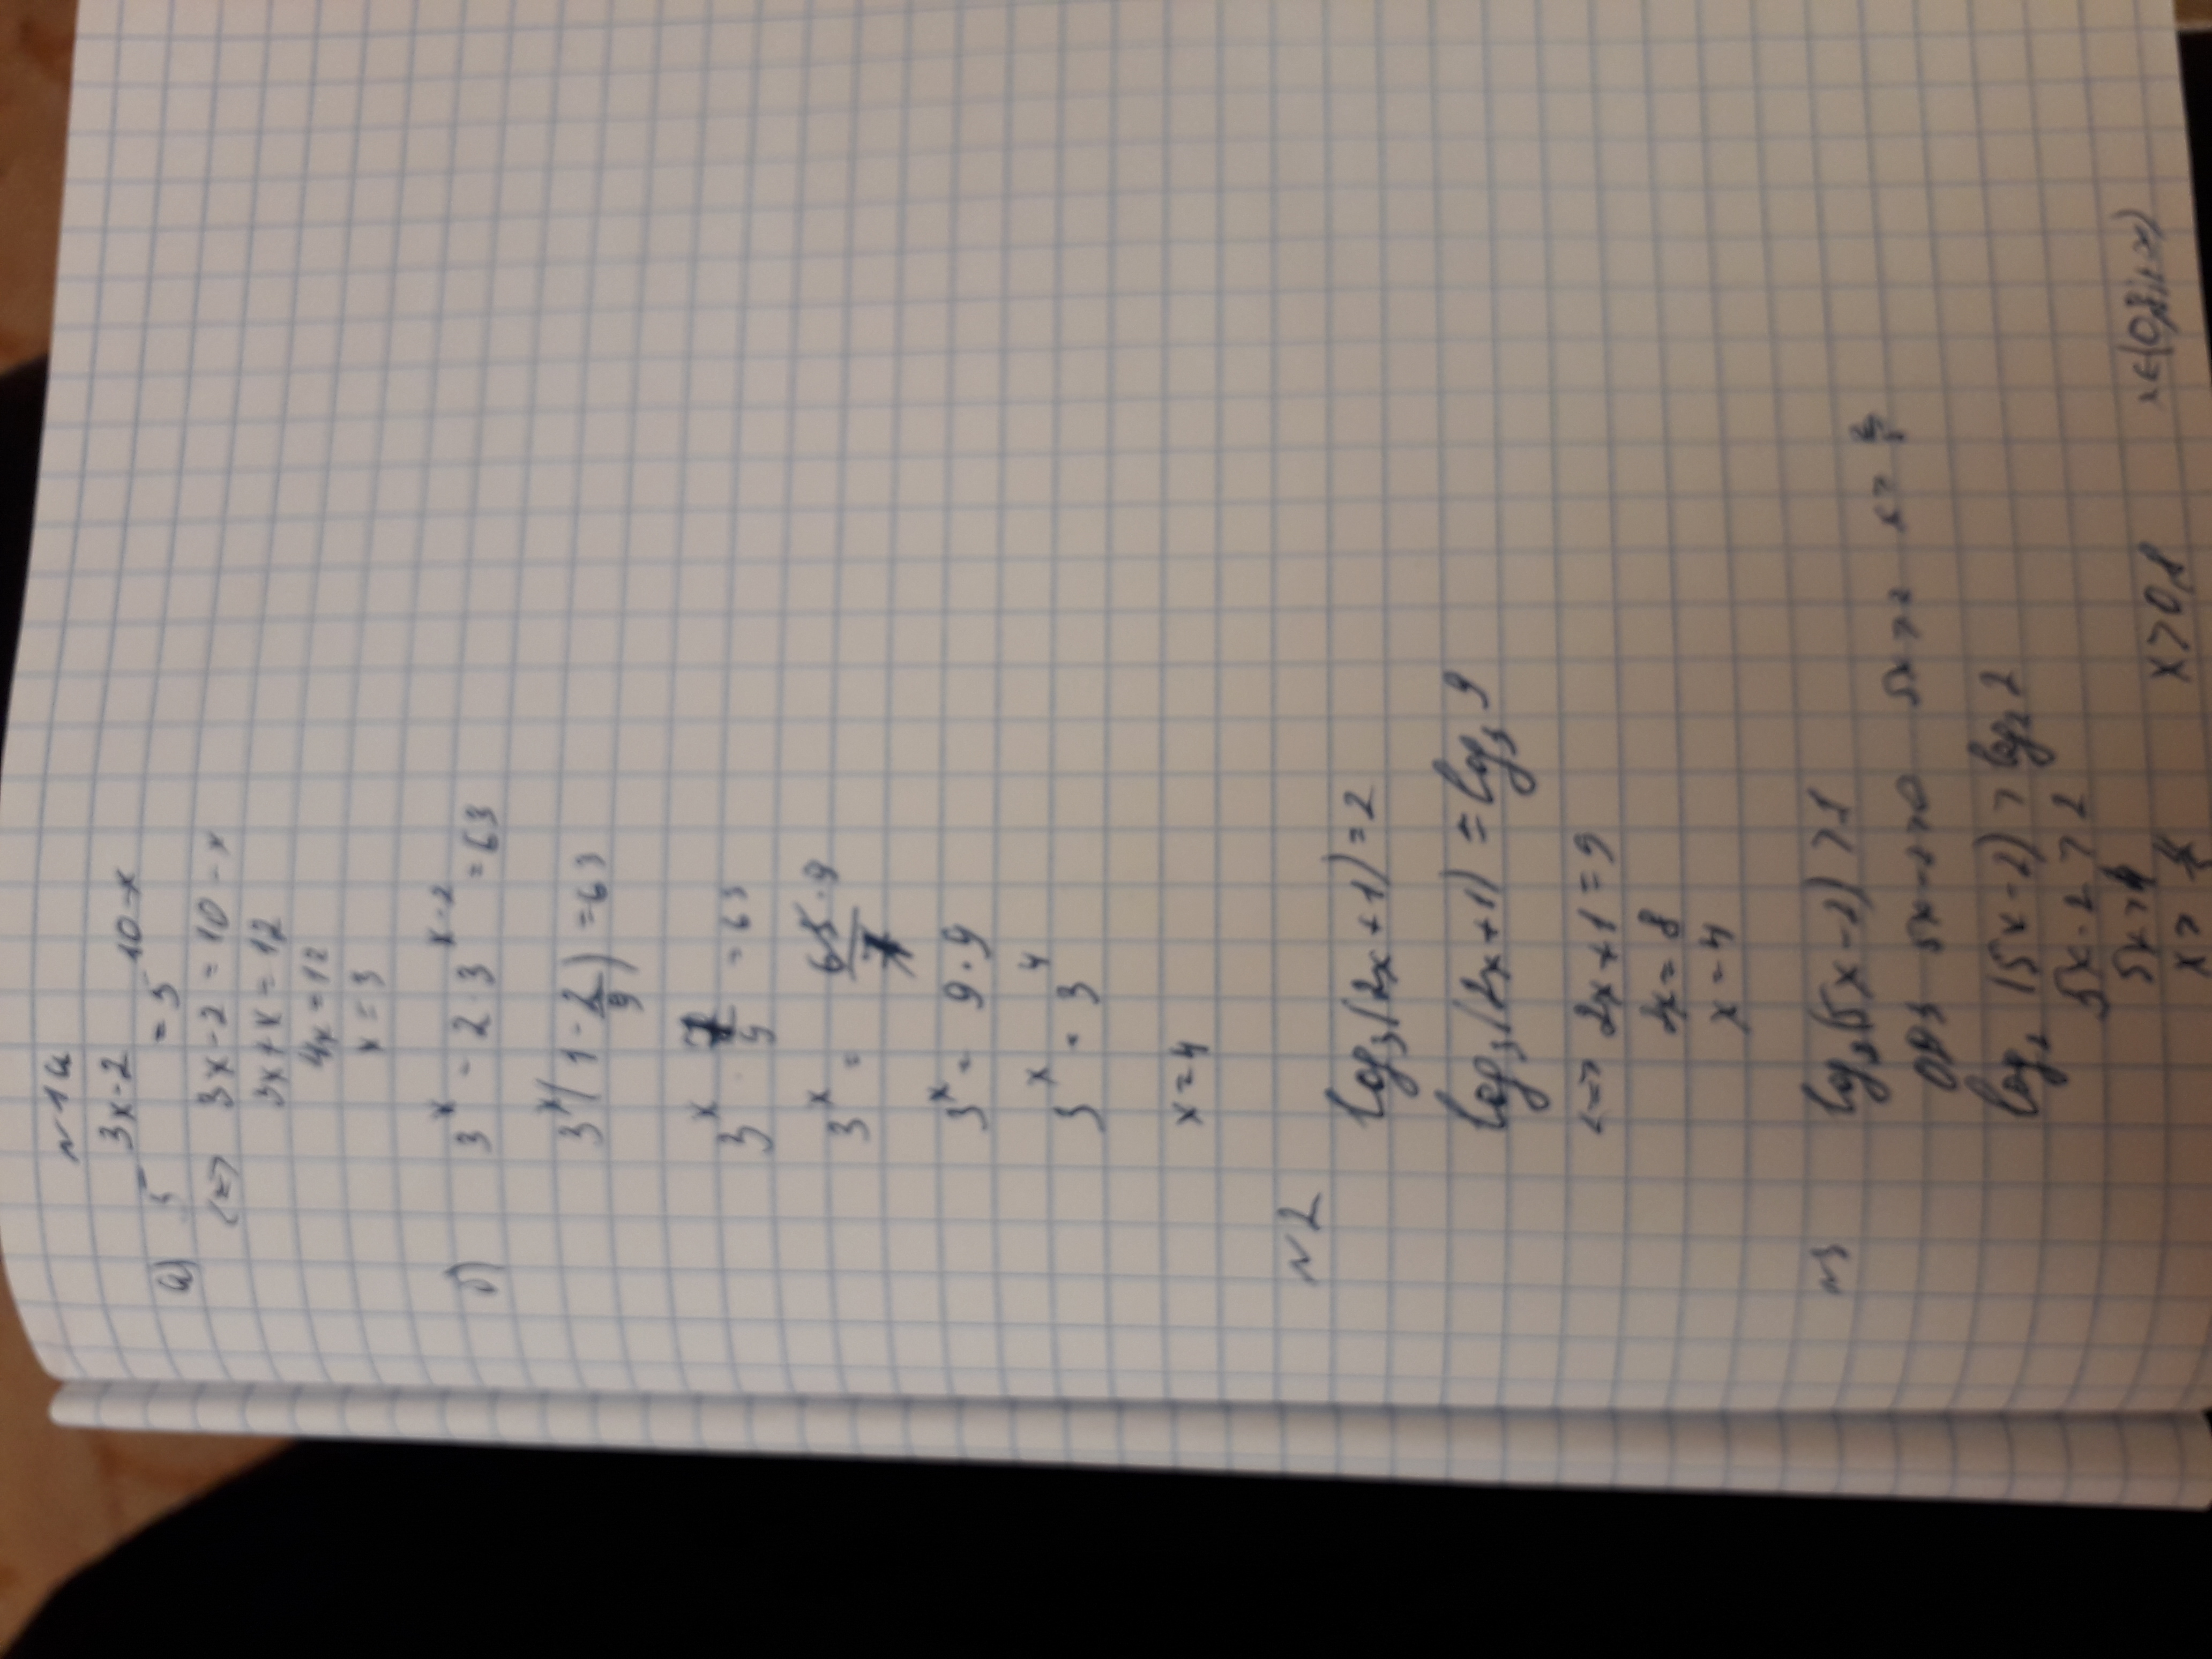 N 1a
а) 5^(3x-2) = 5^(10-x)
<=> 3x-2 = 10-x
3x+x = 12
4x = 12
x = 3
б) 3^x - 2·3^(x-2) = 63
3^x(1 - 2/9) = 63
3^x · 7/9 = 63
3^x = 63·9/7
3^x = 9·9
3^x = 3^4
x = 4
N 2
log₃(2x+1) = 2
log₃(2x+1) = log₃ 9
<=> 2x+1 = 9
2x = 8
x = 4
N3 log₂(5x-2) > 1
ОДЗ 5x-2>0 5x>2 x>
log₂(5x-2) > log₂ 2
5x-2 > 2
5x > 4
x > 4/5 x > 0,8 x∈(0,8;+∞)